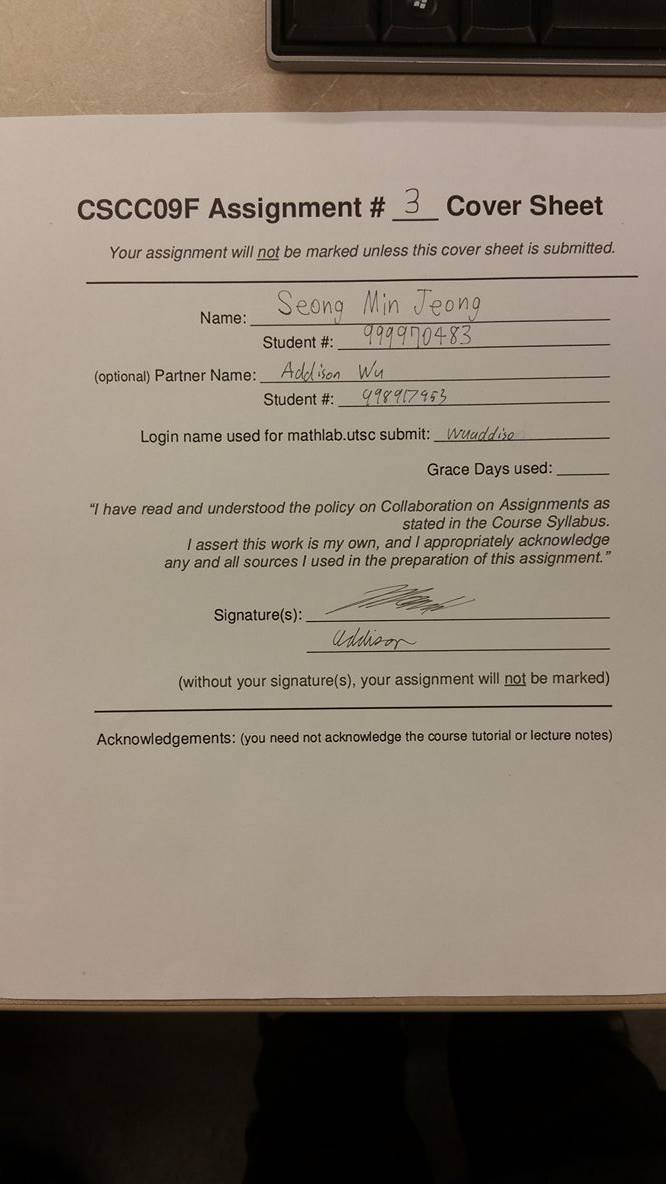 CSCC09F Assignment # 3 Cover Sheet
Your assignment will not be marked unless this cover sheet is submitted.
Name: Seong Min Jeong
Student #: 999970483
(optional) Partner Name: Addison Wu
Student #: 998917953
Login name used for mathlab.utsc submit: wuaddiso
Grace Days used:
“I have read and understood the policy on Collaboration on Assignments as
stated in the Course Syllabus.
I assert this work is my own, and I appropriately acknowledge
any and all sources I used in the preparation of this assignment.”
Signature(s):
Addison
(without your signature(s), your assignment will not be marked)
Acknowledgements: (you need not acknowledge the course tutorial or lecture notes)